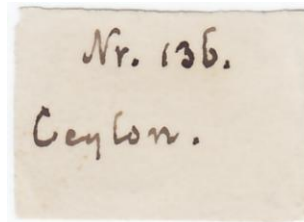 Nr. 136.
Ceylon.